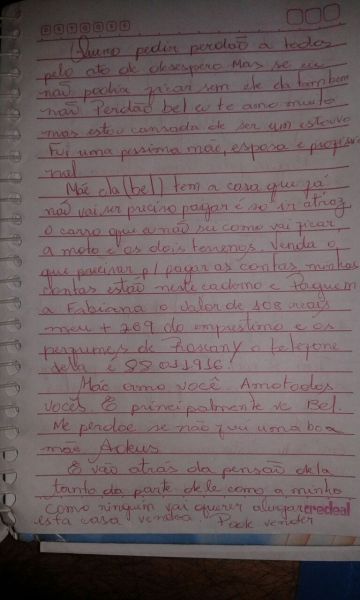 Quero pedir perdão a todos
pelo ato de desespero Mas se eu
não podia ficar sem ele ela também
não Perdão bel eu te amo muito
mas estou cansada de ser um estorvo
Fui uma pessima mãe, esposa e
Mãe ela (bel) tem a casa que já
não vai ser preciso pagar é só ir atraz,
o carro que eu não sei como vai ficar,
a moto e os dois terrenos. Venda o
que precisar p/ pagar as contas, minhas
contas estão neste caderno e Paguem
a Fabiana o valor de 108 reais
meu + 269 do emprestimo e os
perfumes de Rosany o telefone
dela é
Mãe amo você. Amo todos
vocês. E principalmente vc Bel.
Me perdoe se não fui uma boa
mãe Adeus
E vão atrás da pensão dela
tanto da parte dele como a minha
como ninguem vai querer alugar
esta casa vendea Pode vender
credeal